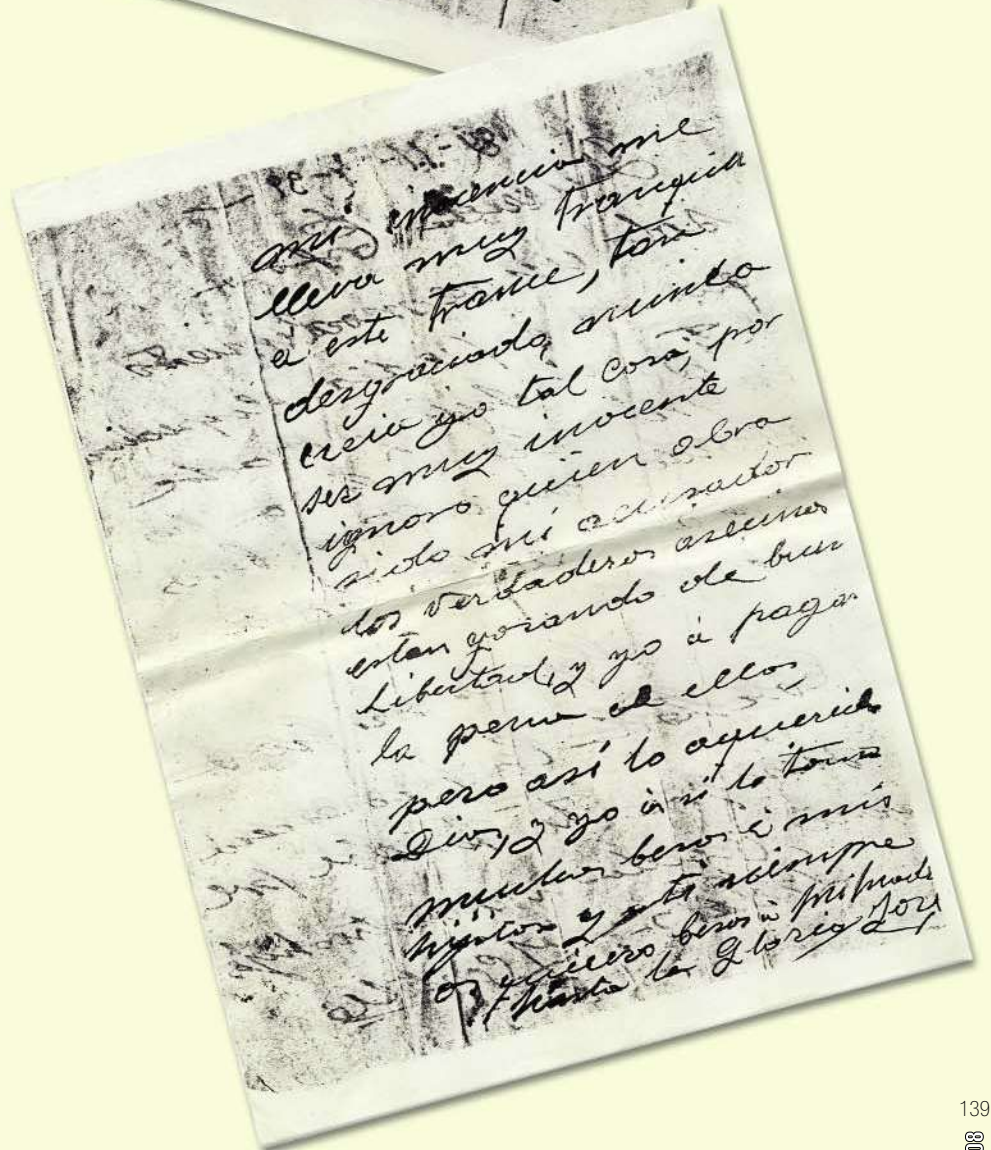 mi inocencia me
lleva muy tranquila
a este trance, tan
desgraciado, nunca
creia yo tal cosa, por
ser muy inocente
ignoro quien abra
sido mi acusador
los verdaderos asecinos
estan gozando de buen
Libertad, y yo á pagar
la pena de ellos
pero así lo aquerido
Dios, y yo á si lo tomo
muchos besos á mis
hijitos y ati siempre
os quiero besos á
hasta la Gloria José
139
08